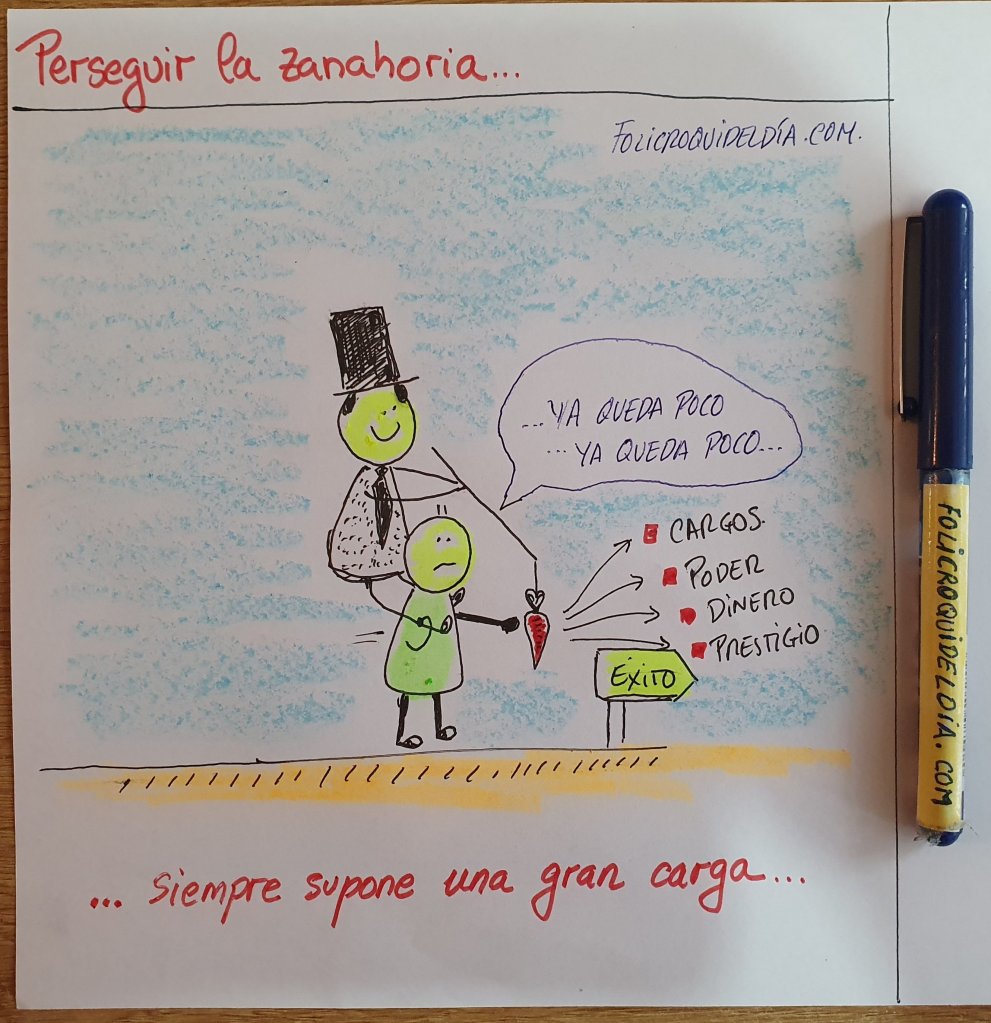 Perseguir la zanahoria...
FOLICROQUIDELDÍA.COM.
...YA QUEDA POCO
... YA QUEDA POCO...
CARGOS.
PODER
DINERO
PRESTIGIO
ÉXITO
... siempre supone una gran carga...
FOLICROQUIDELDÍA.COM